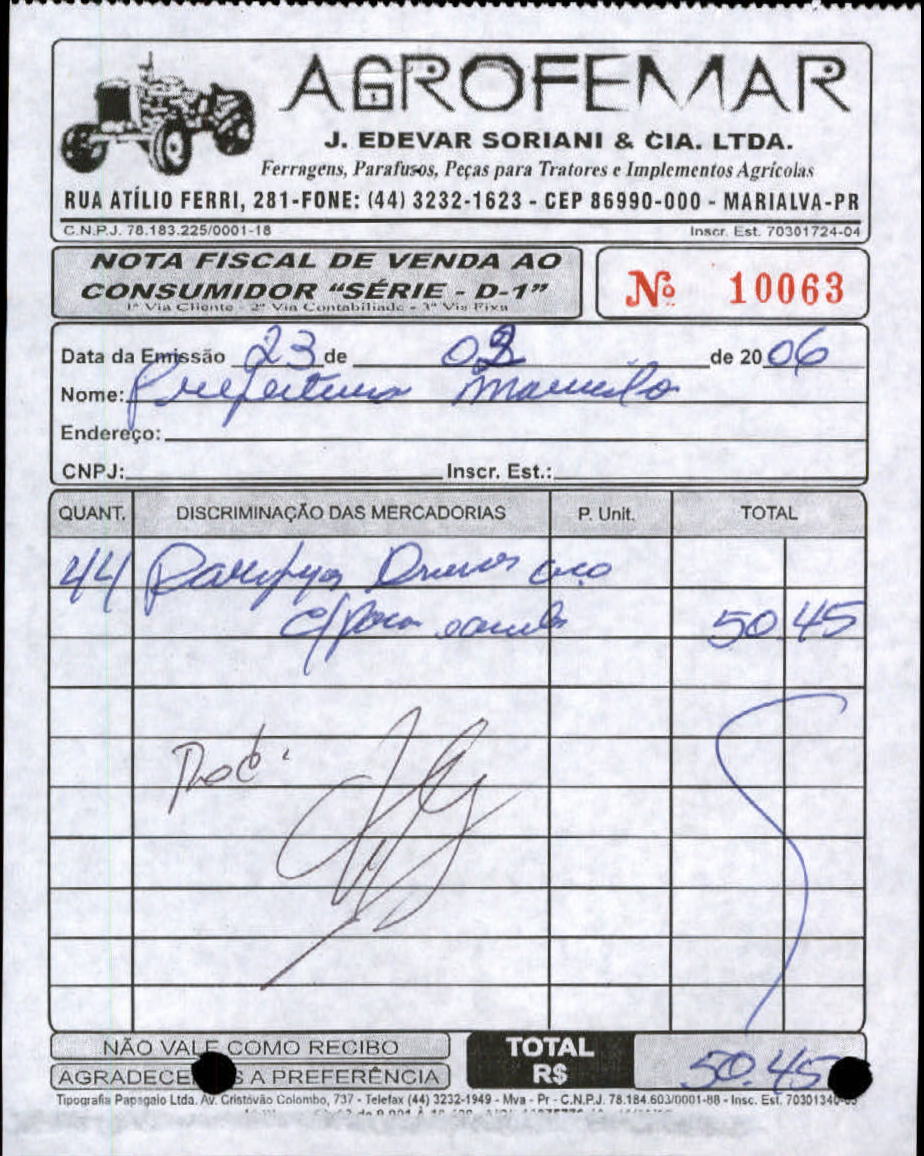 AGROFEMAR
J. EDEVAR SORIANI & CIA. LTDA.
Ferragens, Parafusos, Peças para Tratores e Implementos Agrícolas
RUA ATÍLIO FERRI, 281-FONE: (44) 3232-1623 - CEP 86990-000 - MARIALVA-PR
C.N.P.J. 78.183.225/0001-18 Inscr. Est. 70301724-04
NOTA FISCAL DE VENDA AO
CONSUMIDOR “SÉRIE - D-1”
1ª Via Cliente - 2ª Via Contabilidade - 3ª Via Fixa
Nº 10063
Data da Emissão 23 de de 2006
Nome: Prefeitura
Endereço:
CNPJ: Inscr. Est.:
QUANT. DISCRIMINAÇÃO DAS MERCADORIAS P. Unit. TOTAL
44
c/ 50 45
NÃO VALE COMO RECIBO
A PREFERÊNCIA
TOTAL
R$
50.45
Tipografia Papagaio Ltda. Av. Cristóvão Colombo, 737 - Telefax (44) 3232-1949 - Mva - Pr - C.N.P.J. 78.184.603/0001-88 - Insc. Est.